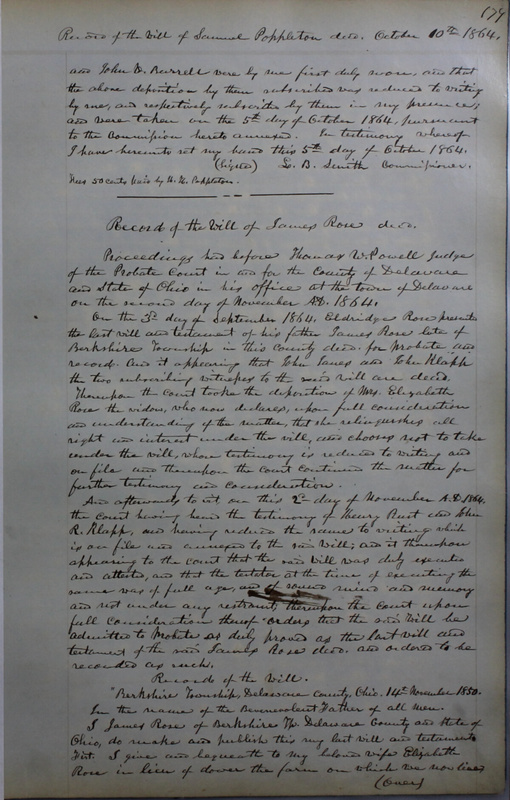 179
Record of the Will of Samuel Poppleton decd. October 10th 1864.
and John D. Burrell were by me first duly sworn, and that
the above deposition by them subscribed was reduced to writing
by me, and respectively subscribed by them in my presence;
and were taken on the 5th day of October 1864, pursuant
to the Commission hereto annexed. In testimony whereof
I have hereunto set my hand this 5th day of October 1864.
(Signed) L. B. Smith Commissioner.
Fees 50 cents paid by H. H. Poppleton.
Record of the Will of James Rose decd.
Proceedings had before Thomas W. Powell Judge
of the Probate Court in and for the County of Delaware
and State of Ohio in his office at the town of Delaware
on the second day of November A.D. 1864.
On the 3d day of September 1864, Eldridge Rose presents
the last will and testament of his father James Rose late of
Berkshire Township in this County decd. for probate and
record. And it appearing that John Janes and John Klapp
the two subscribing witnesses to the said will are decd.
Thereupon the Court took the deposition of Mrs. Elizabeth
Rose the widow, who now declares, upon full consideration
and understanding of the matter, that she relinquishes all
right and interest under the will, and chooses not to take
under the will, whose testimony is reduced to writing and
on file and thereupon the court continued the matter for
further testimony and consideration.
And afterwards to wit on this 2d day of November A.D. 1864,
the court having heard the testimony of Henry Burt and John
R. Klapp, and having reduced the same to writing which
is on file and annexed to the said Will; and it thereupon
appearing to the court that the said Will was duly executed
and attested, and that the testator at the time of executing the
same was of full age, and of sound mind and memory
and not under any restraint; thereupon the Court upon
full consideration thereof orders that the said Will be
admitted to Probate as duly proved as the last will and
testament of the said James Rose decd. and ordered to be
recorded as such.
Records of the Will.
"Berkshire Township, Delaware County, Ohio. 14th November 1850.
In the name of the Benevolent Father of all Men.
I James Rose of Berkshire Tp. Delaware County and State of
Ohio, do make and publish this my last will and testament
First. I give and bequeath to my beloved wife Elizabeth
Rose in lieu of dower the farm on which we now live
(Over)